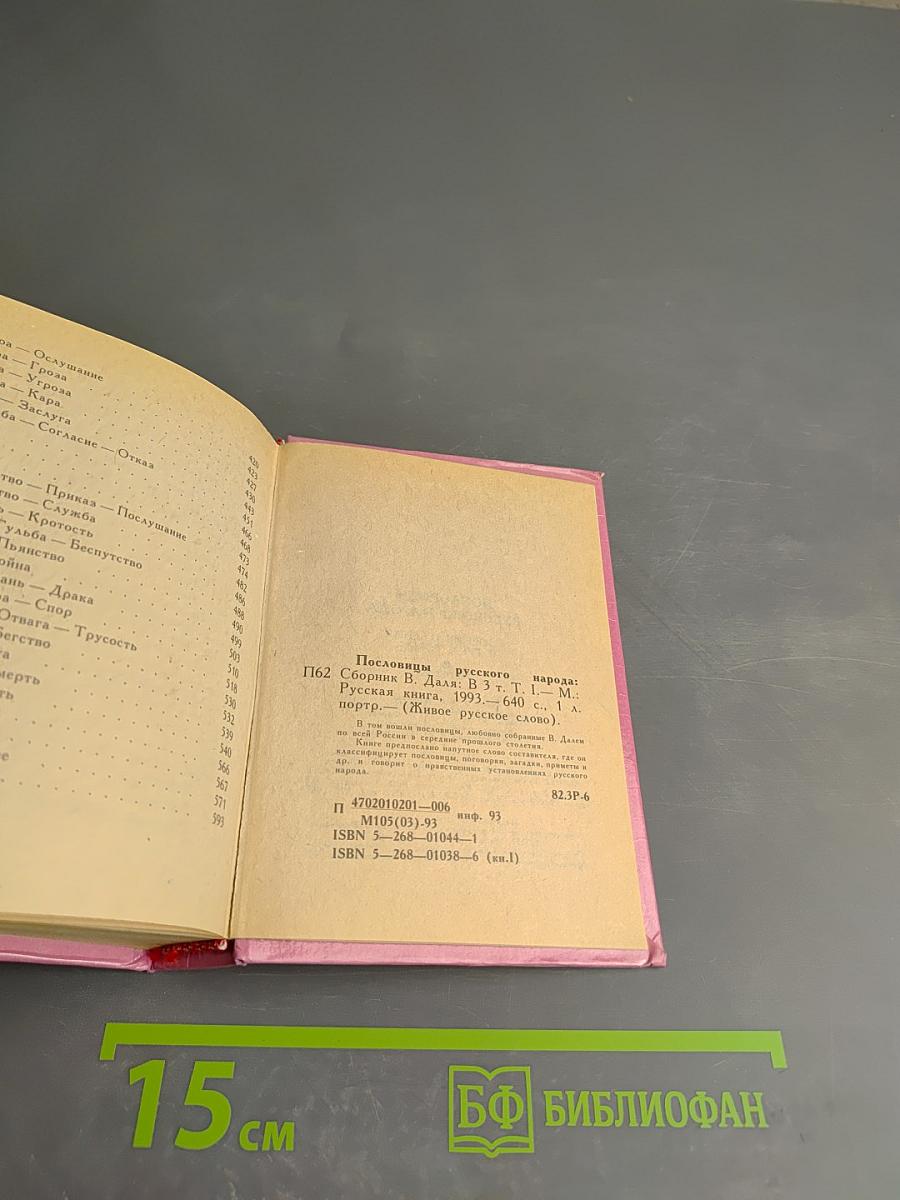 Ослушание
Гроза
Угроза
Кара
Заслуга
Согласие — Отказ
420
423
427
430
443
451
466
468
473
474
482
486
488
490
499
503
510
518
530
532
539
540
566
567
571
593
Приказ — Послушание
Служба
Кротость
Гульба — Беспутство
Пьянство
Драка
Спор
Отвага — Трусость
Бегство
Пословицы русского народа:
П62 Сборник В. Даля: В 3 т. Т. I.— М.:
Русская книга, 1993.— 640 с., 1 л.
портр.— (Живое русское слово).
В том вошли пословицы, любовно собранные В. Далем
по всей России в середине прошлого столетия.
Книге предпослано напутное слово составителя, где он
классифицирует пословицы, поговорки, загадки, приметы и
др. и говорит о нравственных установлениях русского
народа.
82.3Р-6
П 4702010201—006 инф. 93
М105(03)-93
ISBN 5—268—01044—1
ISBN 5—268—01038—6 (кн.I)
15 см
БФ БИБЛИОФАН